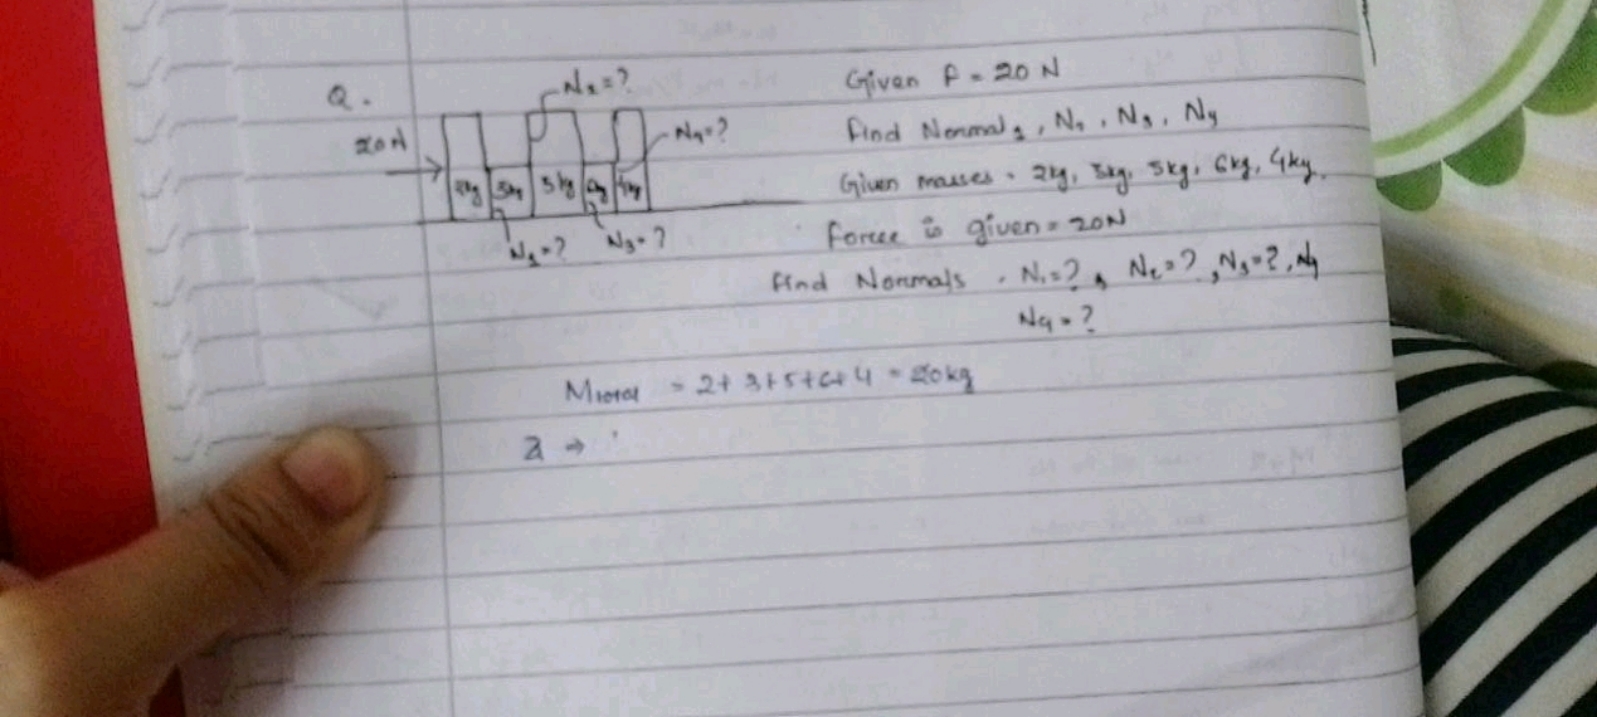 Q.
N2=?
20N
N4=?
2kg 3kg 5kg 6kg 4kg
N1=? N3=?
Given F = 20 N
Find Normal1, N2, N3, N4
Given masses = 2kg, 3kg, 5kg, 6kg, 4kg.
Force is given = 20N
Find Normals. N1=?, N2=?, N3=?, N4
N4=?
MTotal = 2+3+5+6+4 = 20kg
a →